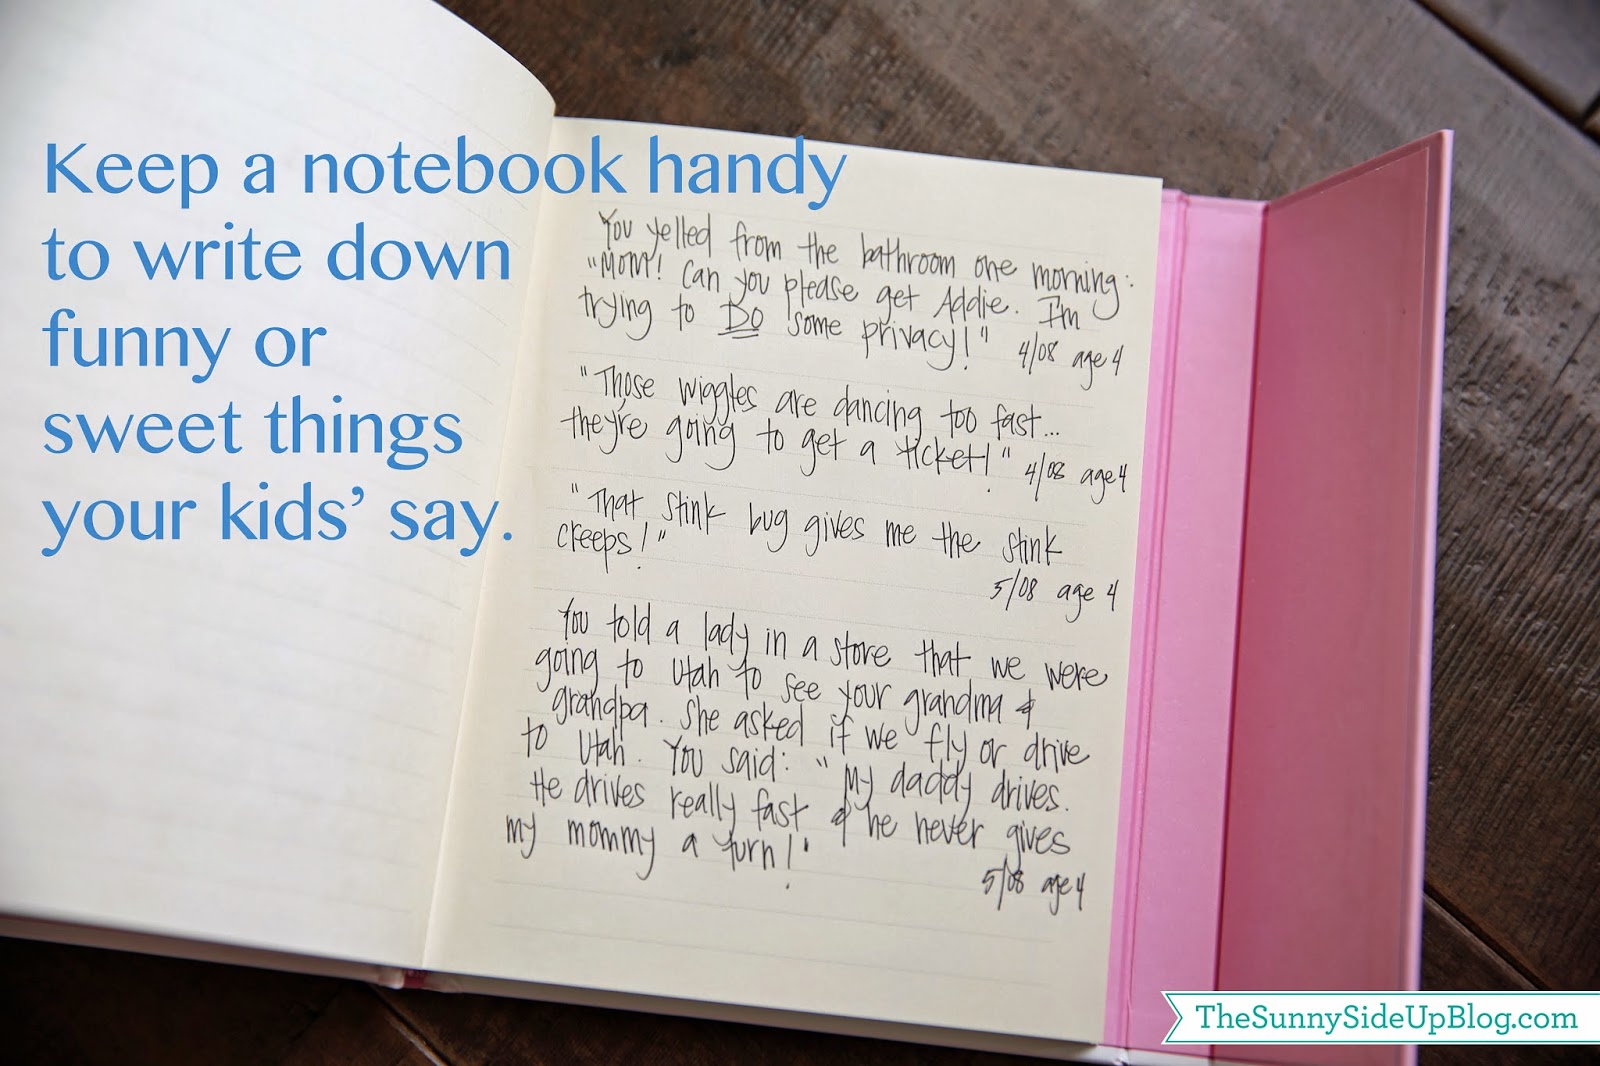 Keep a notebook handy
to write down
funny or
sweet things
your kids’ say.
You yelled from the bathroom one morning:
"Mom! Can you please get Addie. I'm
trying to DO some privacy!" 4/08 age 4
"Those wiggles are dancing too fast...
they're going to get a ticket!" 4/08 age 4
"That stink bug gives me the stink
creeps!"
5/08 age 4
You told a lady in a store that we were
going to Utah to see your grandma &
grandpa. She asked if we fly or drive
to Utah. You said: "My daddy drives.
He drives really fast & he never gives
my mommy a turn!"
5/08 age 4
TheSunnySideUpBlog.com